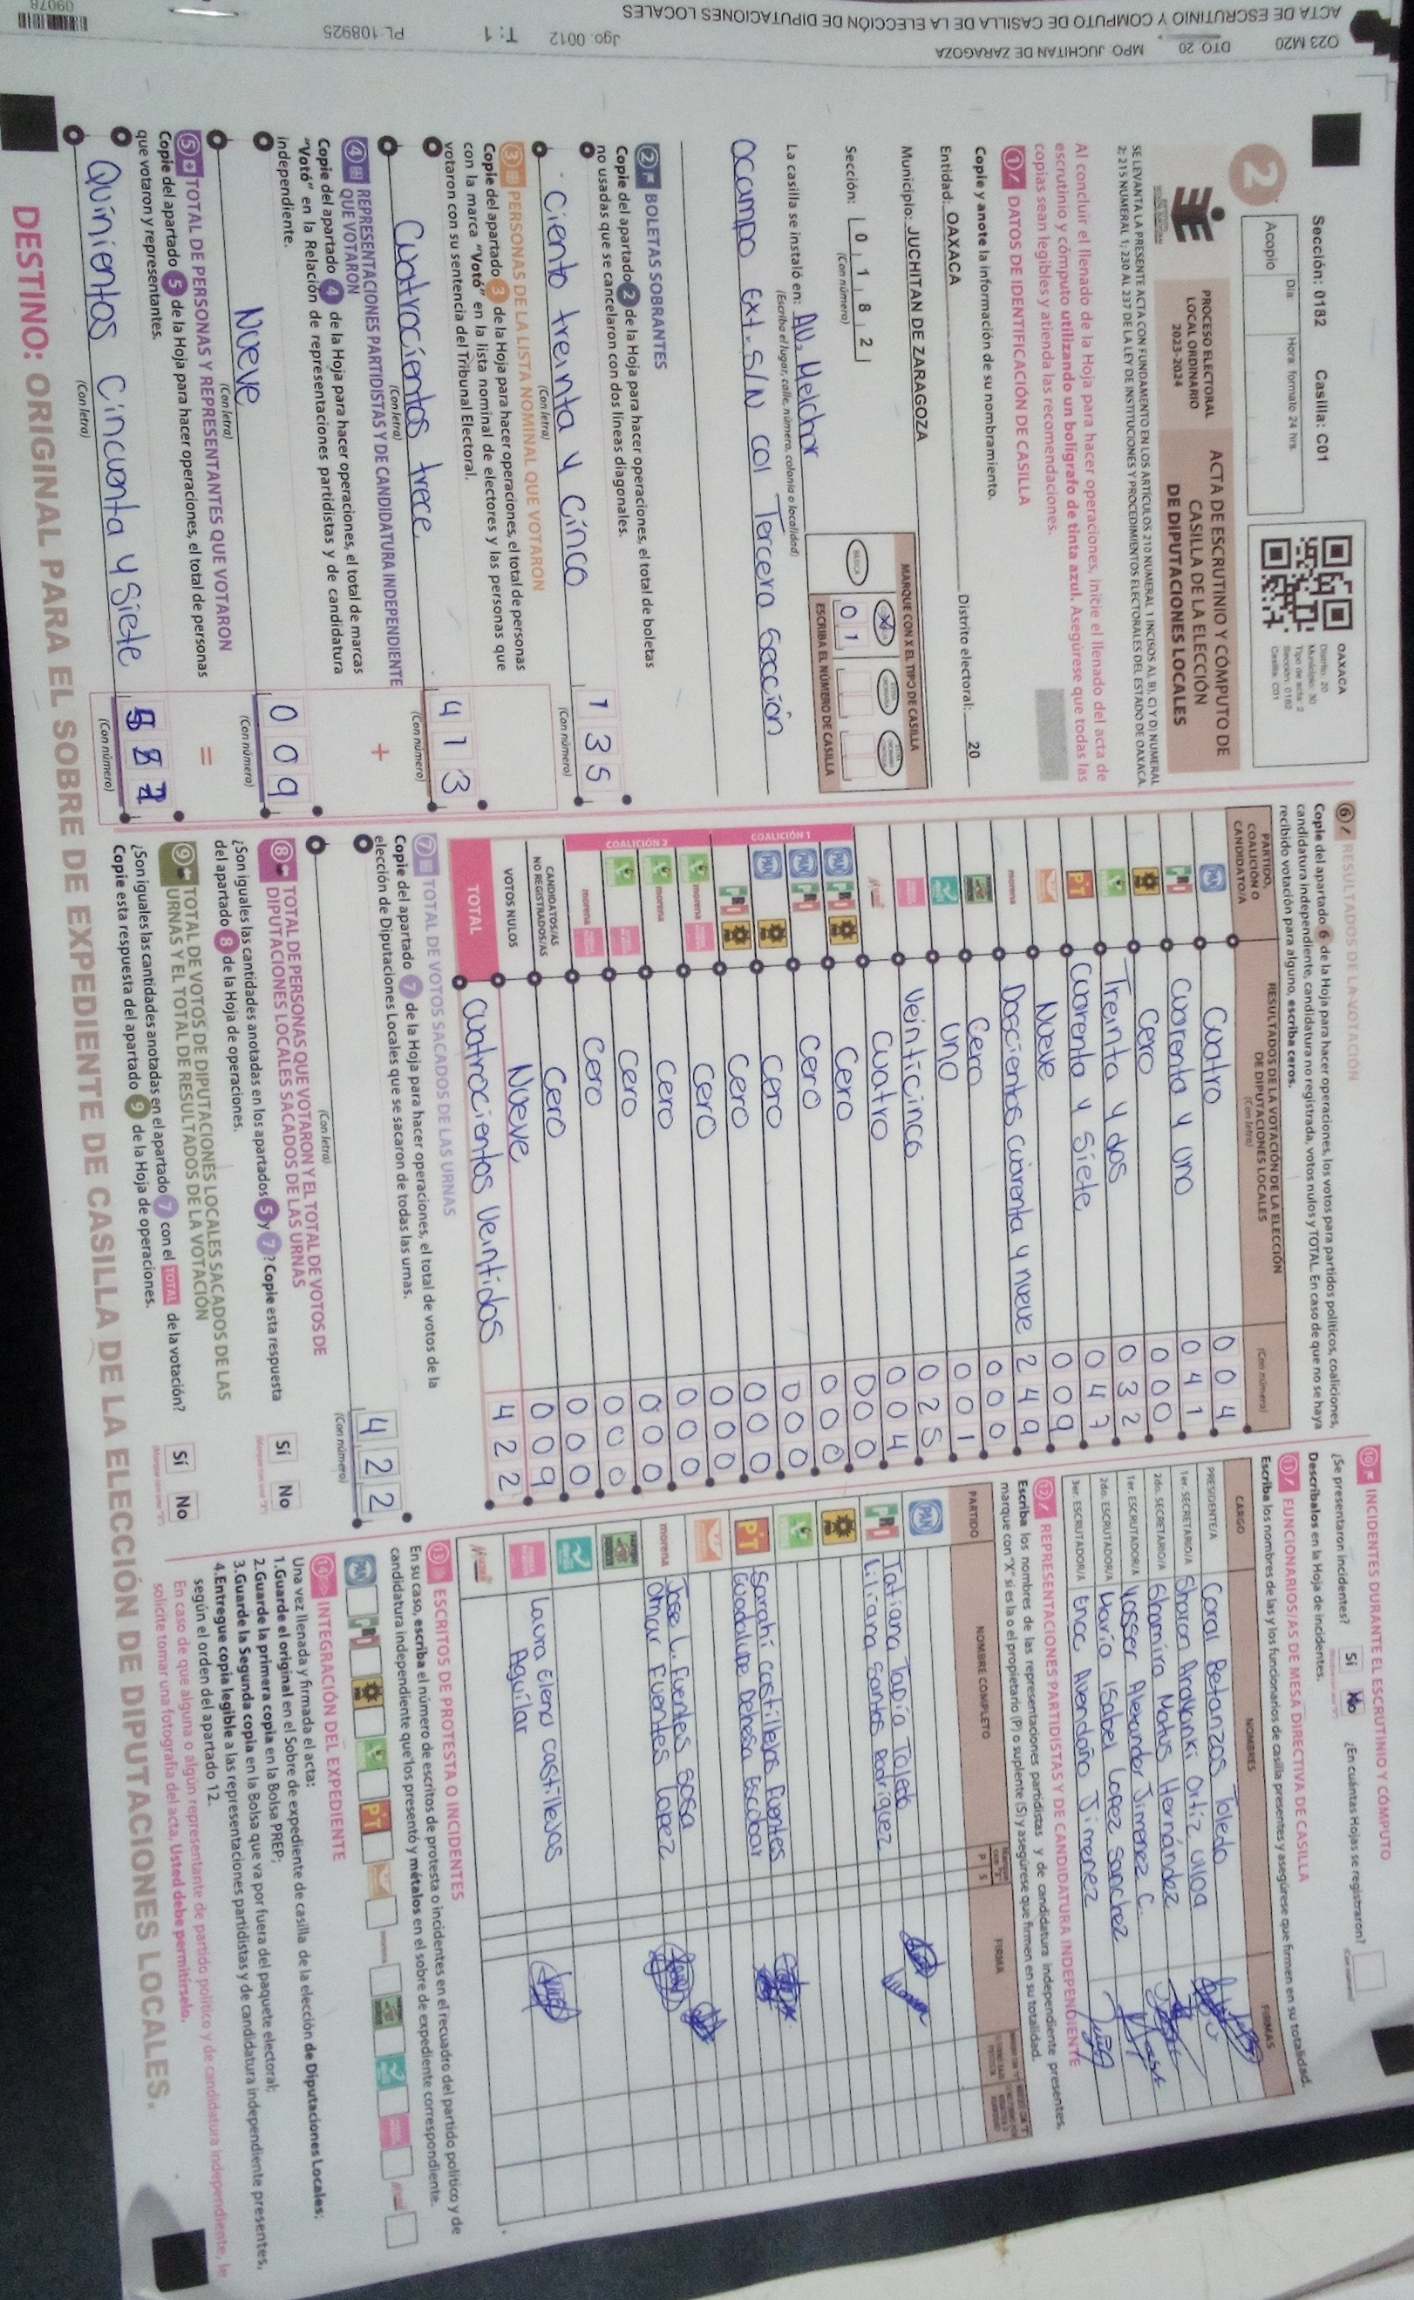 O23 M20 DTO 20 MPO JUCHITAN DE ZARAGOZA Jgo. 0012 T: 1 PL: 108925
ACTA DE ESCRUTINIO Y CÓMPUTO DE CASILLA DE LA ELECCIÓN DE DIPUTACIONES LOCALES
09078
Sección: 0182 Casilla: C01
Día: Hora: formato 24 hrs.
Acopio
2
OAXACA
Distrito: 20
Municipio: 30
Tipo de acta: 2
Sección: 0182
Casilla: C01
PROCESO ELECTORAL
LOCAL ORDINARIO
2023-2024
ACTA DE ESCRUTINIO Y CÓMPUTO DE
CASILLA DE LA ELECCIÓN
DE DIPUTACIONES LOCALES
SE LEVANTA LA PRESENTE ACTA CON FUNDAMENTO EN LOS ARTÍCULOS 210 NUMERAL 1 INCISOS A), B), C) Y D) NUMERAL
2; 215 NUMERAL 1; 230 AL 237 DE LA LEY DE INSTITUCIONES Y PROCEDIMIENTOS ELECTORALES DEL ESTADO DE OAXACA.
Al concluir el llenado de la Hoja para hacer operaciones, inicie el llenado del acta de
escrutinio y cómputo utilizando un bolígrafo de tinta azul. Asegúrese que todas las
copias sean legibles y atienda las recomendaciones.
1 DATOS DE IDENTIFICACIÓN DE CASILLA
Copie y anote la información de su nombramiento.
Entidad: OAXACA Distrito electoral: 20
Municipio: JUCHITAN DE ZARAGOZA
MARQUE CON X EL TIPO DE CASILLA
Sección: 0182
(Con número)
BÁSICA
01
ESCRIBA EL NÚMERO DE CASILLA
La casilla se instaló en: AV. Melchor
(Escriba el lugar, calle, número, colonia o localidad)
Ocampo Ext. S/N col Tercera Sección
2 BOLETAS SOBRANTES
Copie del apartado 2 de la Hoja para hacer operaciones, el total de boletas
no usadas que se cancelaron con dos líneas diagonales.
Ciento treinta y Cinco 135
(Con letra) (Con número)
3 PERSONAS DE LA LISTA NOMINAL QUE VOTARON
Copie del apartado 3 de la Hoja para hacer operaciones, el total de personas
con la marca "Votó" en la lista nominal de electores y las personas que
votaron con su sentencia del Tribunal Electoral.
Cuatrocientos trece 413
(Con letra) (Con número)
+
4 REPRESENTACIONES PARTIDISTAS Y DE CANDIDATURA INDEPENDIENTE
QUE VOTARON
Copie del apartado 4 de la Hoja para hacer operaciones, el total de marcas
"Votó" en la Relación de representaciones partidistas y de candidatura
independiente.
Nueve 009
(Con letra) (Con número)
=
5 TOTAL DE PERSONAS Y REPRESENTANTES QUE VOTARON
Copie del apartado 5 de la Hoja para hacer operaciones, el total de personas
que votaron y representantes.
Quinientos Cincuenta y Siete
(Con letra) (Con número)
6 RESULTADOS DE LA VOTACIÓN
Copie del apartado 6 de la Hoja para hacer operaciones, los votos para partidos políticos, coaliciones,
candidatura independiente, candidatura no registrada, votos nulos y TOTAL. En caso de que no se haya
recibido votación para alguno, escriba ceros.
PARTIDO, COALICIÓN O CANDIDATO/A
RESULTADOS DE LA VOTACIÓN DE LA ELECCIÓN
DE DIPUTACIONES LOCALES
(Con letra) (Con número)
PAN Cuatro 004
PRI Cuarenta y uno 041
PRD Cero 000
Treinta y dos 032
PT Cuarenta y Siete 047
Nueve 009
morena Doscientos cuarenta y nueve 249
Cero 000
Uno 001
Veinticinco 025
Cuatro 004
COALICIÓN 1
PAN PRI PRD Cero 000
PAN PRI Cero 000
PAN PRD Cero 000
PRI PRD Cero 000
COALICIÓN 2
morena Cero 000
morena Cero 000
Cero 000
morena Cero 000
CANDIDATOS/AS
NO REGISTRADOS/AS Cero 000
VOTOS NULOS Nueve 009
TOTAL Cuatrocientos Veintidos 422
7 TOTAL DE VOTOS SACADOS DE LAS URNAS
Copie del apartado 7 de la Hoja para hacer operaciones, el total de votos de la
elección de Diputaciones Locales que se sacaron de todas las urnas.
422
(Con letra) (Con número)
8 TOTAL DE PERSONAS QUE VOTARON Y EL TOTAL DE VOTOS DE
DIPUTACIONES LOCALES SACADOS DE LAS URNAS
¿Son iguales las cantidades anotadas en los apartados 5 y 7? Copie esta respuesta
del apartado 8 de la Hoja de operaciones. Sí No
9 TOTAL DE VOTOS DE DIPUTACIONES LOCALES SACADOS DE LAS
URNAS Y EL TOTAL DE RESULTADOS DE LA VOTACIÓN
¿Son iguales las cantidades anotadas en el apartado 7 con el TOTAL de la votación?
Copie esta respuesta del apartado 9 de la Hoja de operaciones. Sí No
10 INCIDENTES DURANTE EL ESCRUTINIO Y CÓMPUTO
¿Se presentaron incidentes? Sí No ¿En cuántas Hojas se registraron?
Descríbalos en la Hoja de incidentes.
11 FUNCIONARIOS/AS DE MESA DIRECTIVA DE CASILLA
Escriba los nombres de las y los funcionarios de casilla presentes y asegúrese que firmen en su totalidad.
CARGO NOMBRES FIRMAS
PRESIDENTE/A Coral Betanzos Toledo
1er. SECRETARIO/A Sharon Aravanki Ortiz Ulloa
2do. SECRETARIO/A Shamira Matus Hernández
1er. ESCRUTADOR/A Yosser Alexander Jimenez C.
2do. ESCRUTADOR/A Maria Isabel Lopez Sanchez
3er. ESCRUTADOR/A Enoc Avendaño Jimenez
12 REPRESENTACIONES PARTIDISTAS Y DE CANDIDATURA INDEPENDIENTE
Escriba los nombres de las representaciones partidistas y de candidatura independiente presentes,
marque con "X" si es la o el propietario (P) o suplente (S) y asegúrese que firmen en su totalidad.
PARTIDO NOMBRE COMPLETO P S FIRMA
PAN
PRI Tatiana Tapia Toledo
Liliana Santos Rodriguez
PRD
Sarahí Castillejos Fuentes
PT Guadalupe Dehesa Escobar
morena Jose L. Fuentes Sosa
Omar Fuentes Lopez
Laura Elena Castillejos
Aguilar
13 ESCRITOS DE PROTESTA O INCIDENTES
En su caso, escriba el número de escritos de protesta o incidentes en el recuadro del partido político y de
candidatura independiente que los presentó y métalos en el sobre de expediente correspondiente.
PAN PRI PRD PT morena
14 INTEGRACIÓN DEL EXPEDIENTE
Una vez llenada y firmada el acta:
1.Guarde el original en el Sobre de expediente de casilla de la elección de Diputaciones Locales;
2.Guarde la primera copia en la Bolsa PREP;
3.Guarde la Segunda copia en la Bolsa que va por fuera del paquete electoral;
4.Entregue copia legible a las representaciones partidistas y de candidatura independiente presentes,
según el orden del apartado 12.
En caso de que alguna o algún representante de partido político y de candidatura independiente, le
solicite tomar una fotografía del acta, Usted debe permitírselo.
DESTINO: ORIGINAL PARA EL SOBRE DE EXPEDIENTE DE CASILLA DE LA ELECCIÓN DE DIPUTACIONES LOCALES.